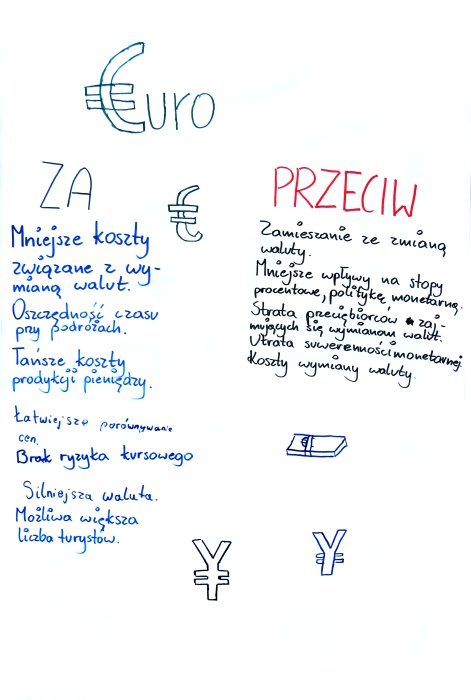 €uro
ZA
€
Mniejsze koszty
związane z wy-
mianą walut.
Oszczędność czasu
przy podróżach.
Tańsze koszty
produkcji pieniędzy.
Łatwiejsze porównywanie
cen.
Brak ryzyka kursowego
Silniejsza waluta.
Możliwa większa
liczba turystów.
PRZECIW
Zamieszanie ze zmianą
waluty.
Mniejsze wpływy na stopy
procentowe, politykę monetarną.
Strata przeciębiorców zaj-
mujących się wymianom walut.
Utrata suwerenności monetarnej.
Koszty wymiany waluty.
€
¥
¥